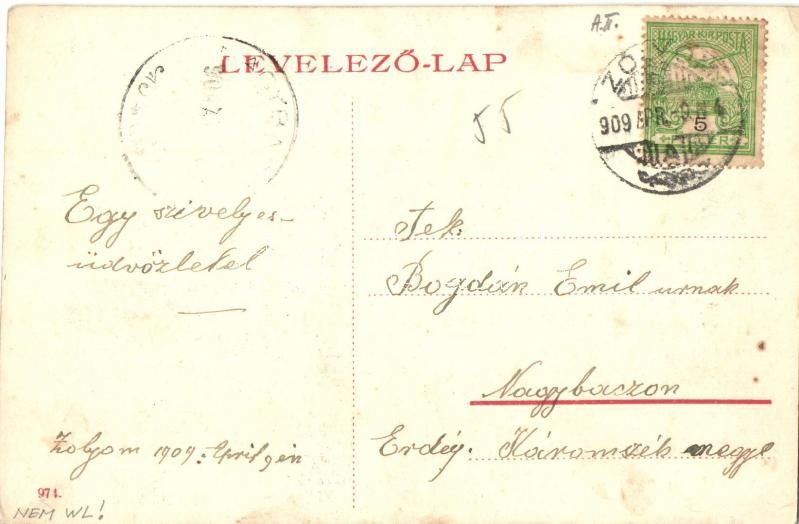 A.II.
LEVELEZŐ-LAP
MAGYAR KIR. POSTA
909 APR. 9
5
55
Egy szivelyes-
üdvözletel
Zolyom 1909. April 9 én
Tek.
Bogdán Emil urnak
Nagybaczon
Erdéy. Háromszék megye
971.
NEM WL!